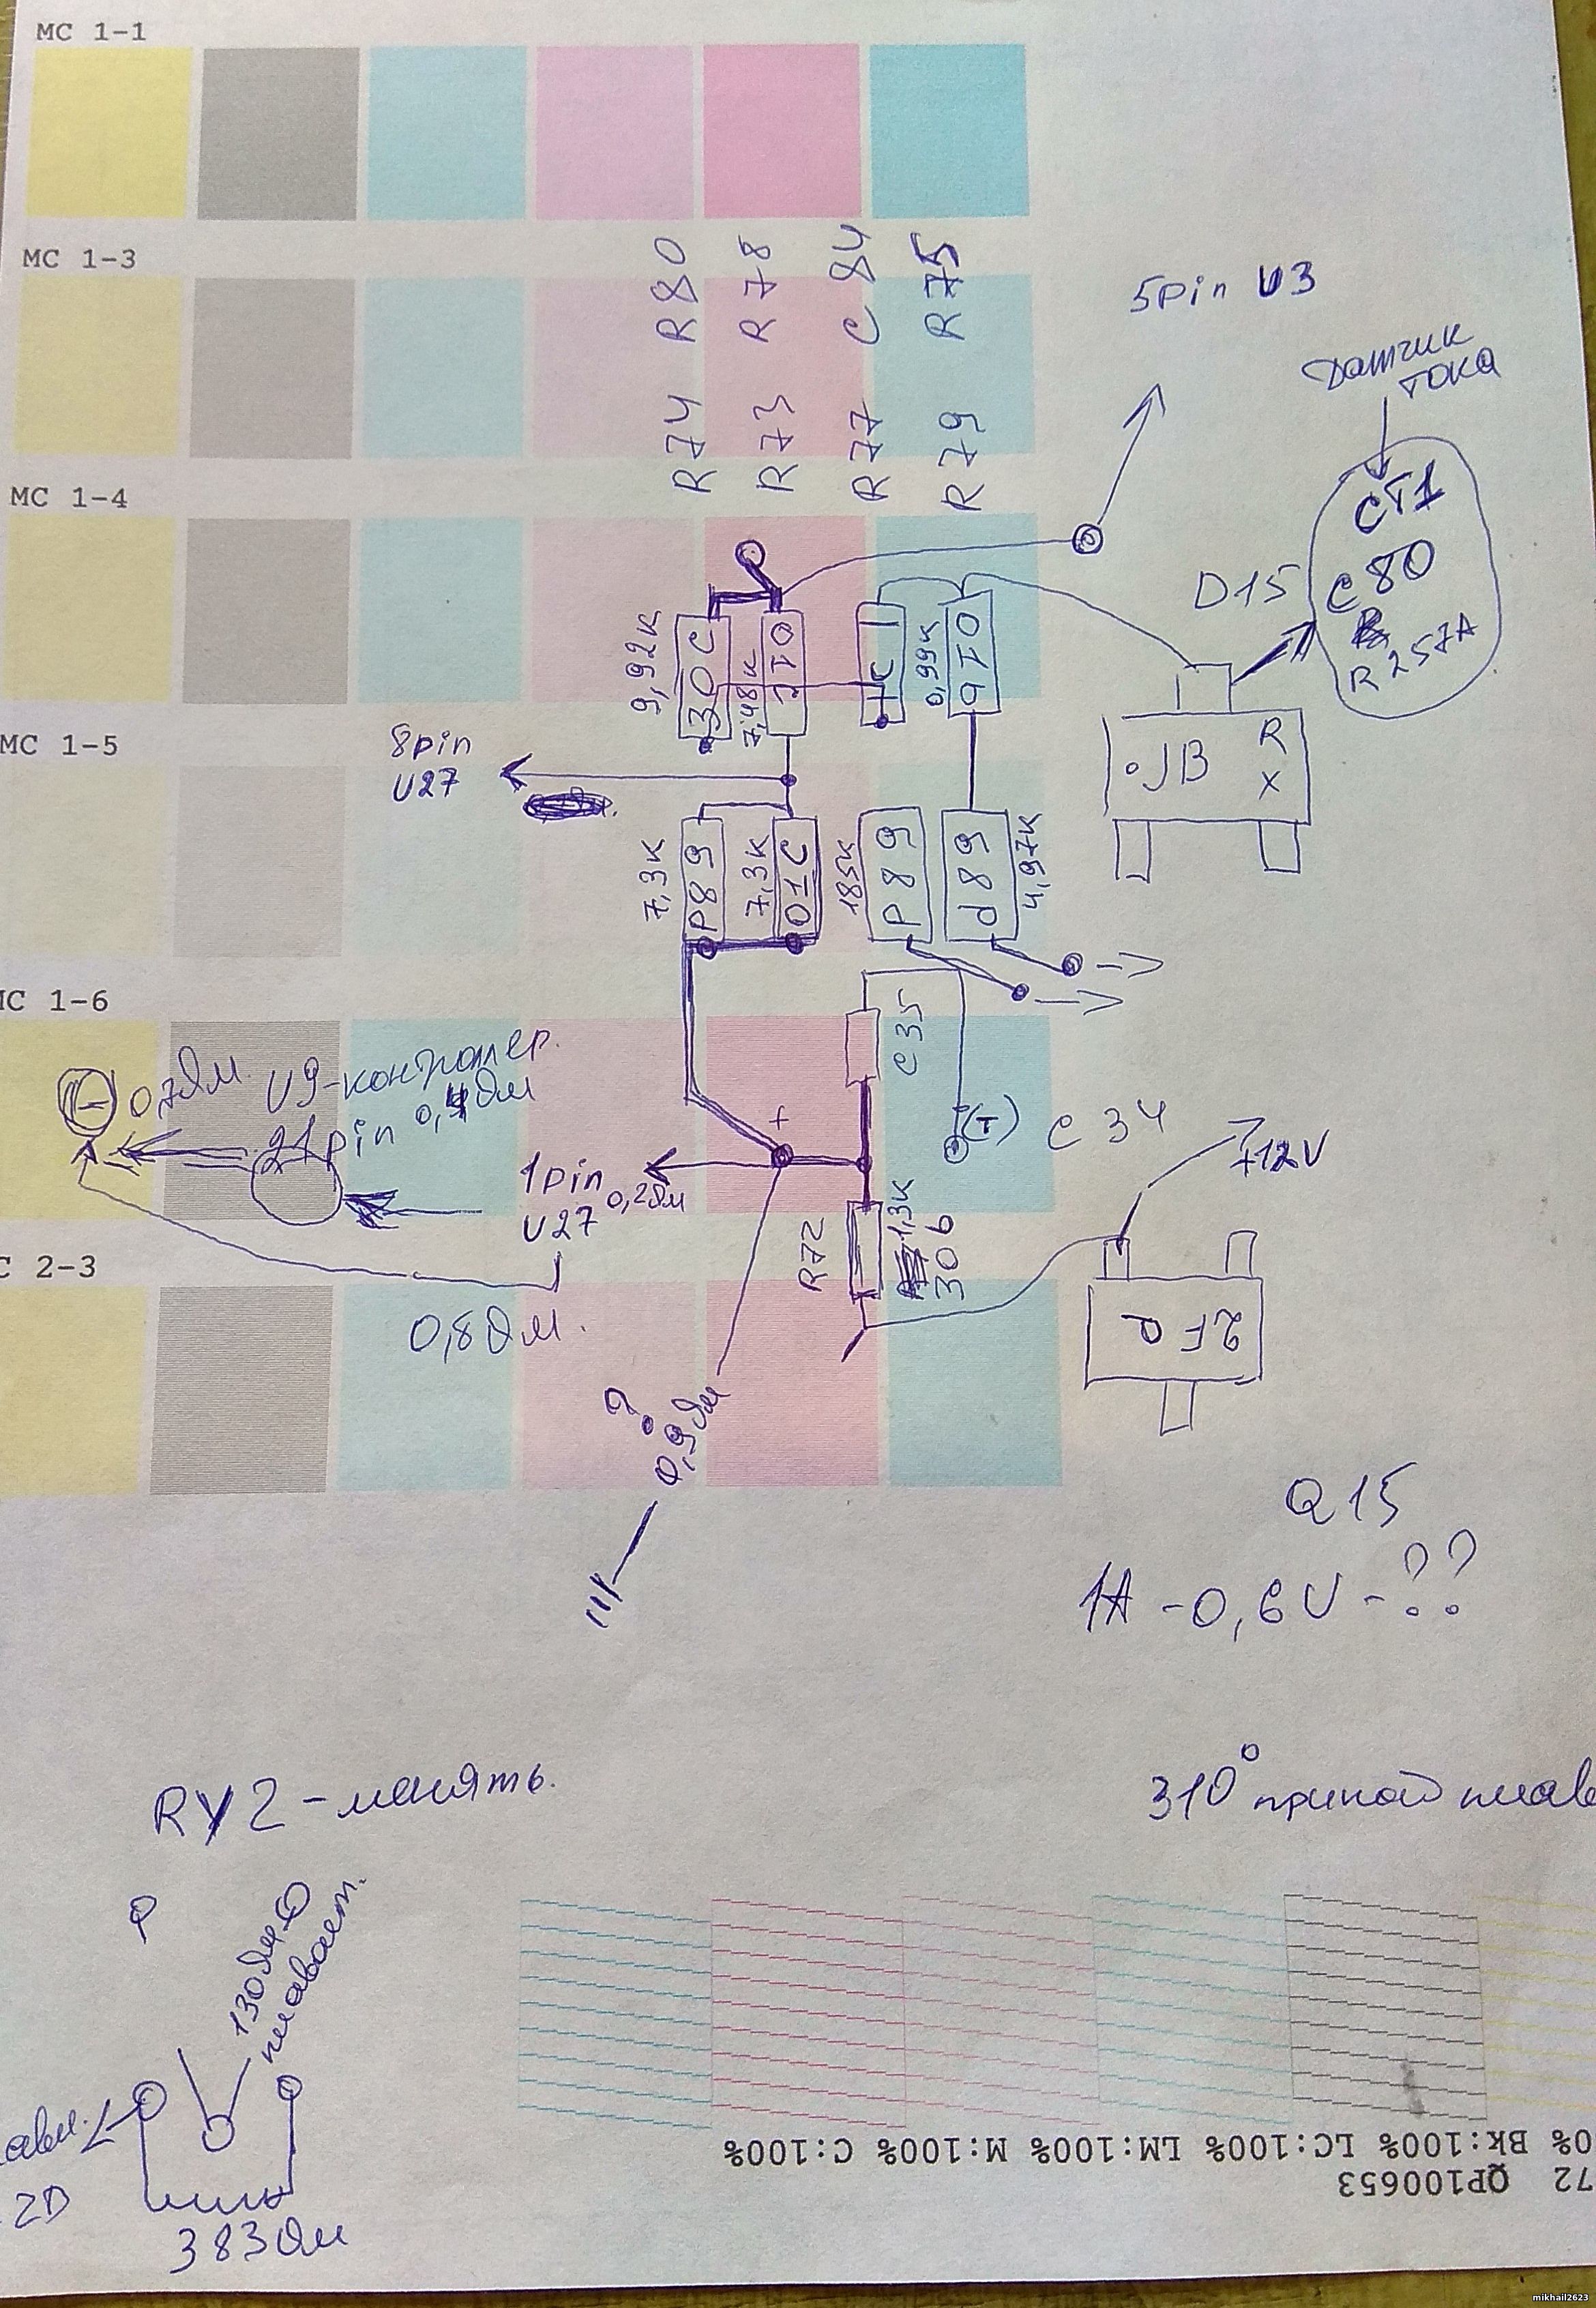 MC 1-1
MC 1-3
R80 R78 C84 R75
R74 R73 R77 R79
5pin U3
Датчик
тока
MC 1-4
CT1
C80
R257A
D15
9,92к
30C
7,48к
01C
1C
0,99к
01b
MC 1-5
8pin
U27
JB
R
X
7,3к
P89
7,3к
01C
185к
P89
d89
4,97к
MC 1-6
C35
0,7Ом.
U9-контролер.
21pin 0,4Ом
(T) C34
+
+12V
1pin
U27 0,2Ом
R72
1,3к
306
C 2-3
0,8Ом.
2FP
?
0,9Ом
Q15
1A -0,6V-??
RY2-менять.
310° припой
130Ом
плавает.
2D
383Ом
0% BK:100% LC:100% LM:100% M:100% C:100%
72 QP100653
mikhail2623